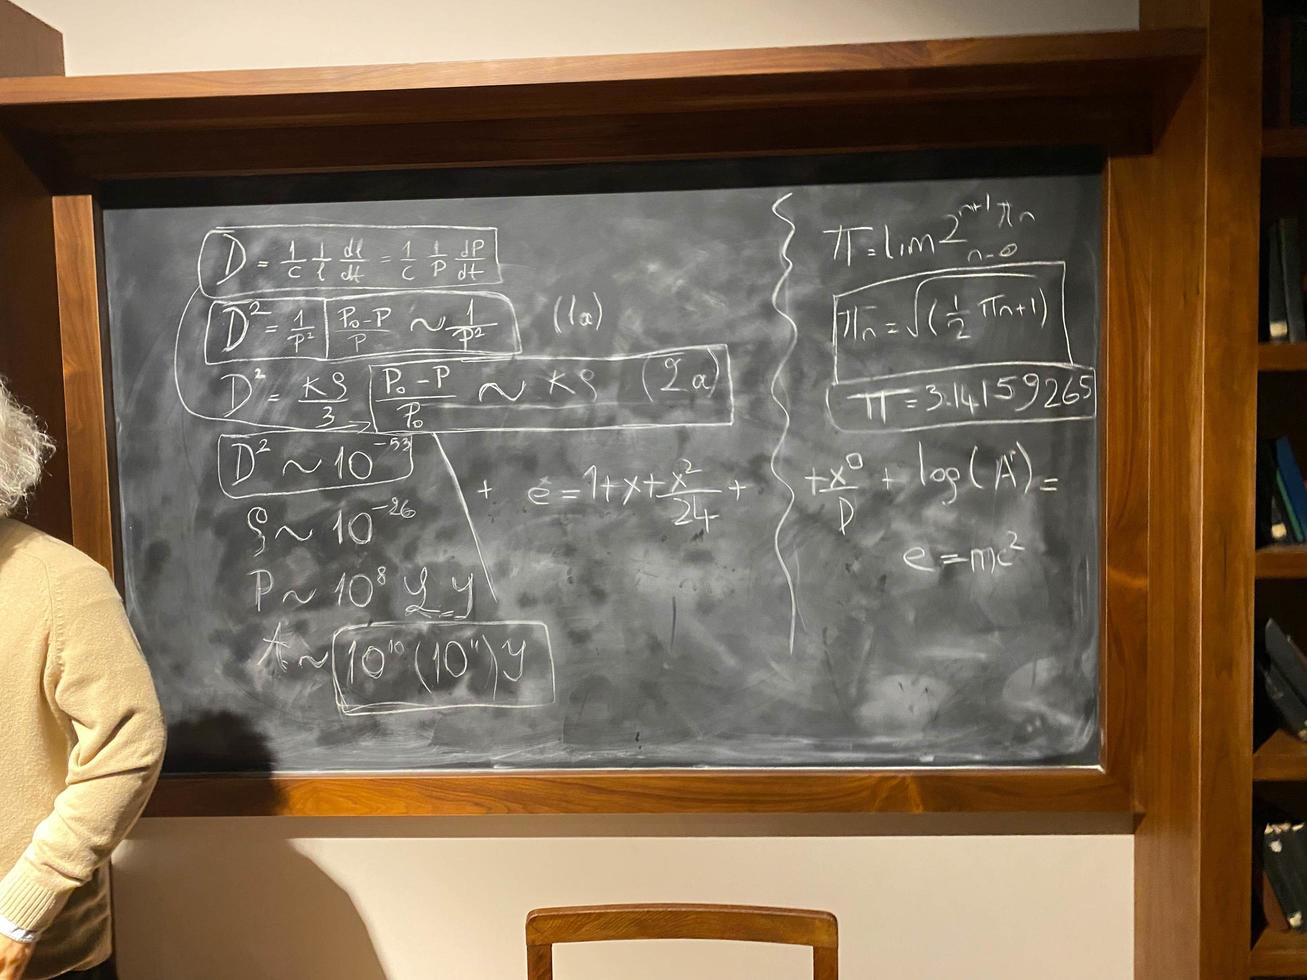 D = 1/c 1/l dl/dt = 1/c 1/P dP/dt
D² = 1/P² P₀-P/P ~ 1/P² (1a)
D² = Kϱ/3 P₀-P/P₀ ~ Kϱ (2a)
D² ~ 10⁻⁵³
ϱ ~ 10⁻²⁶
P ~ 10⁸ L.y
t ~ 10¹⁰(10¹¹)y
+ e = 1+x+x²/24+
π = lim 2ⁿ⁺¹πn
n-∞
πn = √(1/2 πn+1)
π = 3.14159265
+x⁰/D + log(A) =
e = mc²